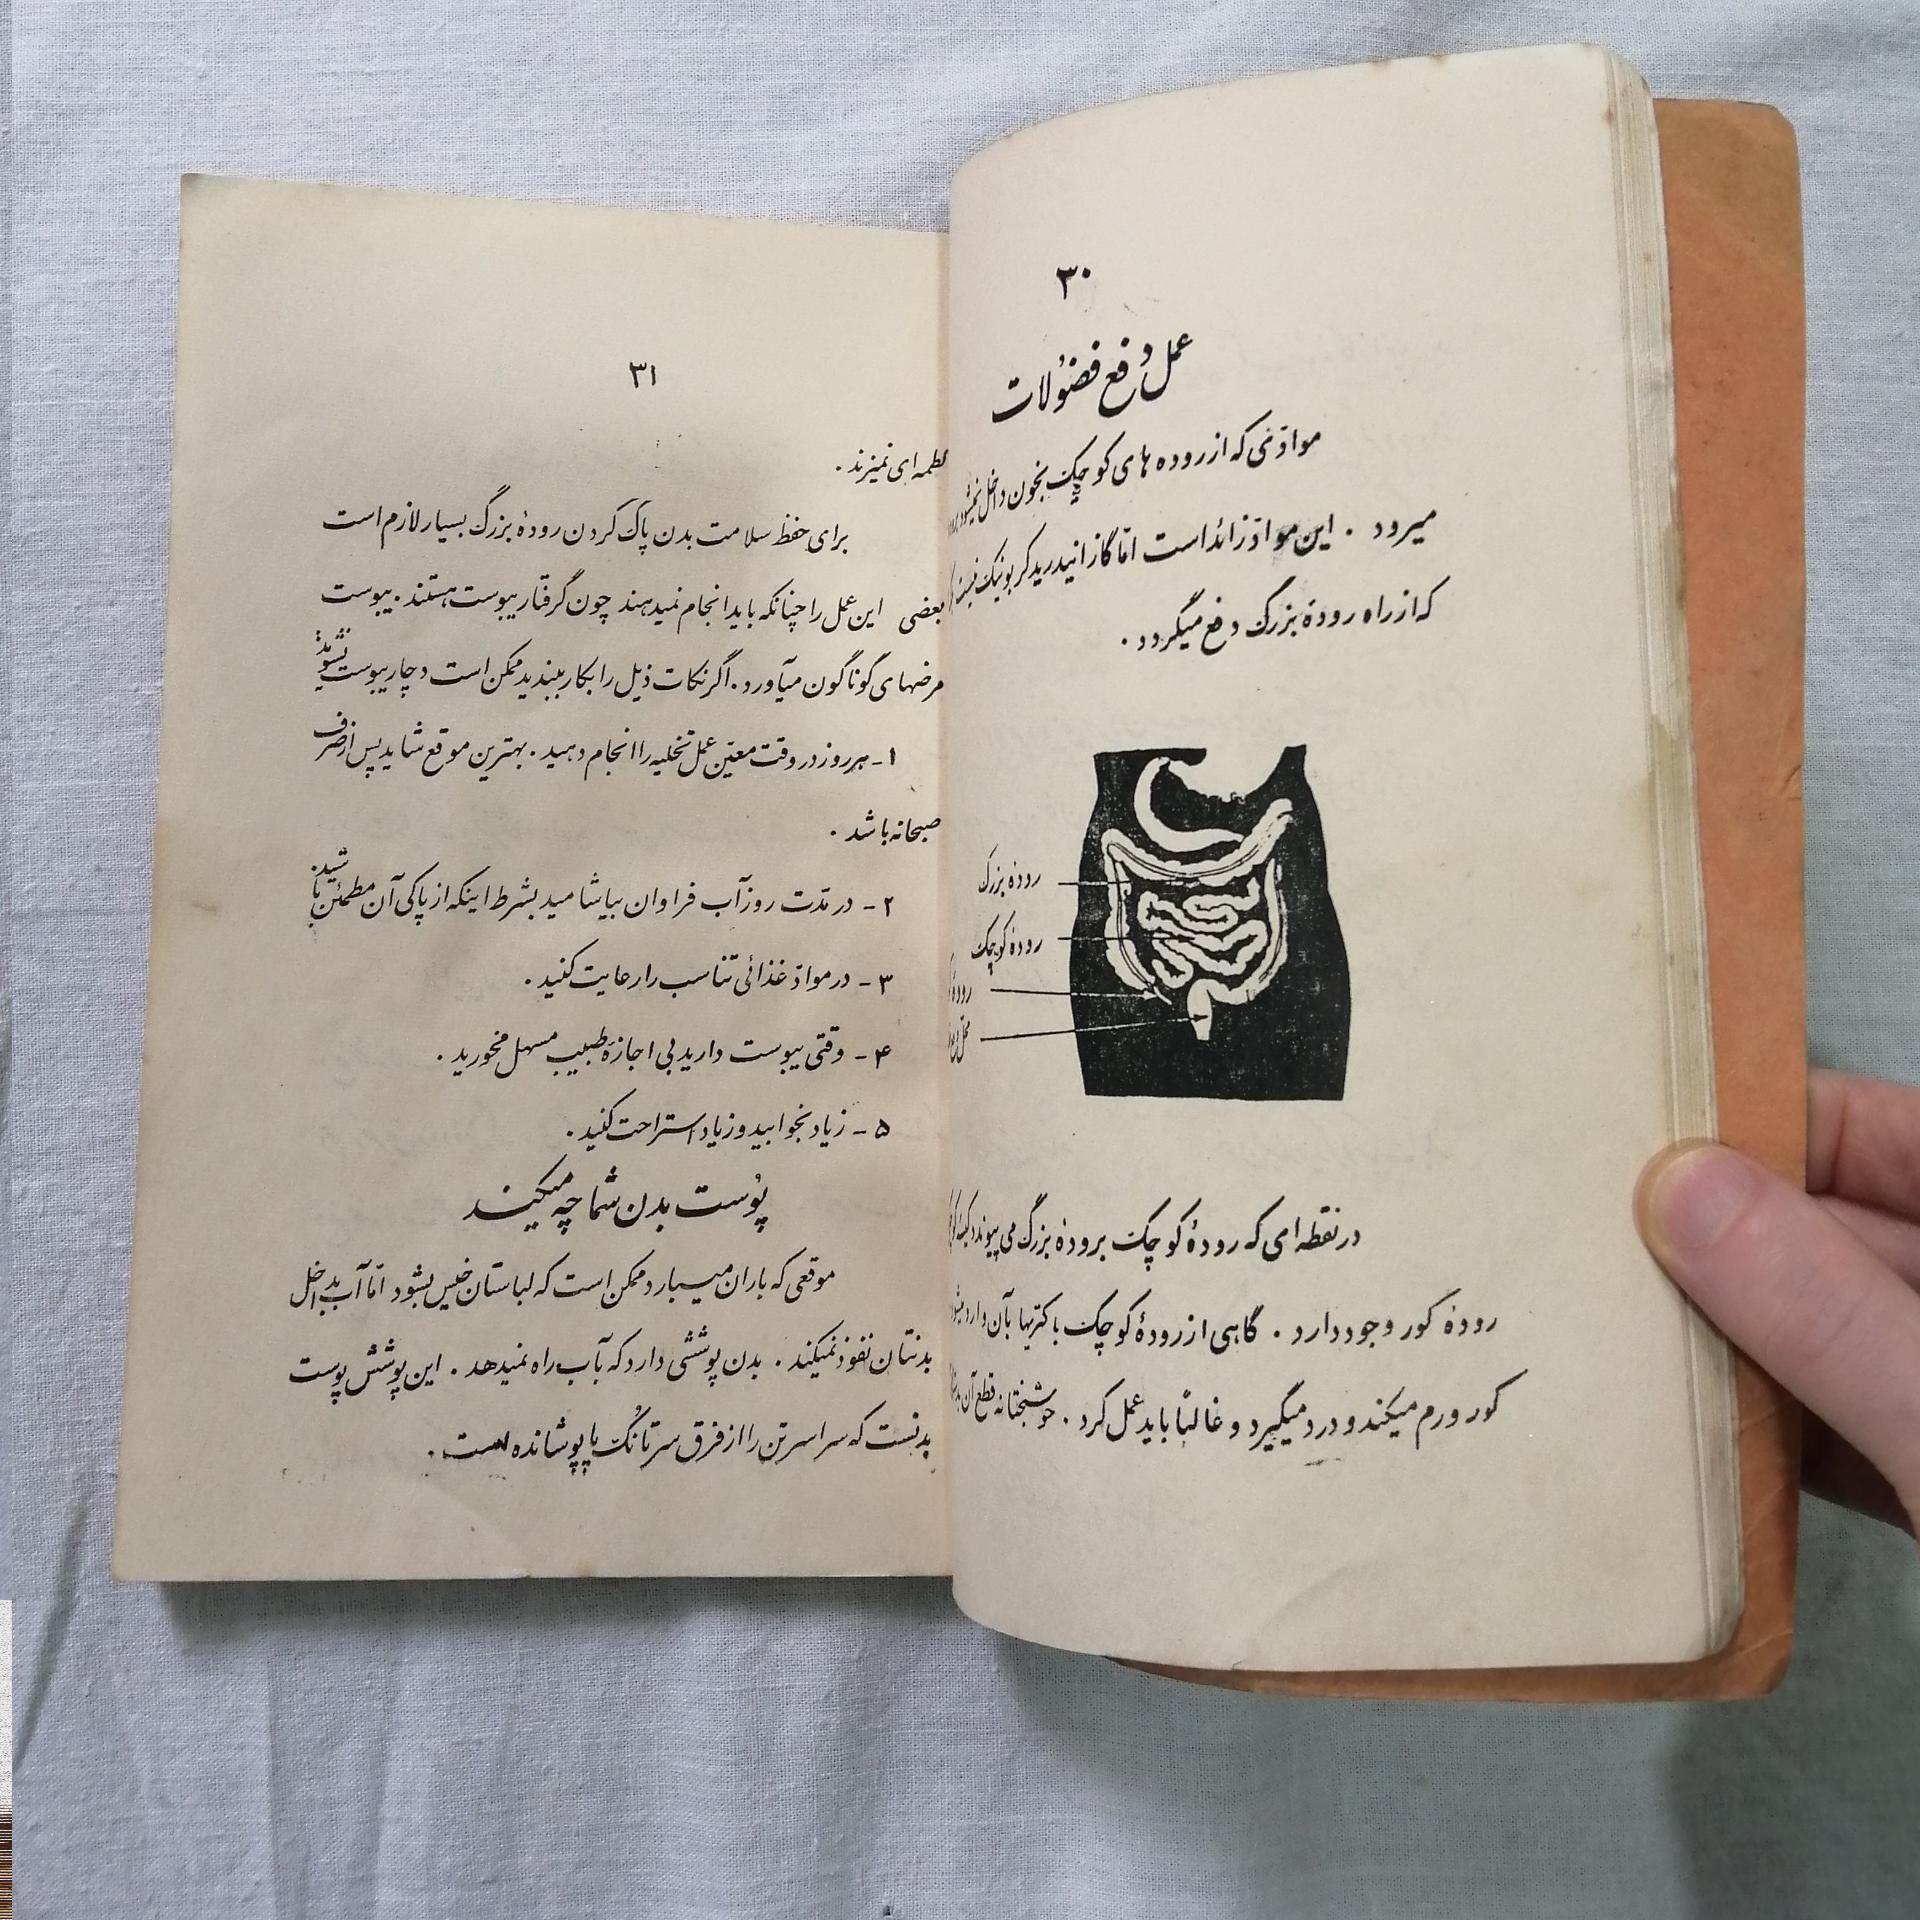 ۳۰
عمل دفع فضولات
موادّی که از روده های کوچک بخون داخل نمیشود
میرود . این موادّ زائد است امّا گاز انیدرید کربونیک نیست
که از راه رودهٔ بزرگ دفع میگردد .
رودهٔ بزرگ
رودهٔ کوچک
رودهٔ
محل
در نقطه ای که رودهٔ کوچک برودهٔ بزرگ می پیوندد کیسه
رودهٔ کور وجود دارد . گاهی از رودهٔ کوچک باکتریها بآن وارد میشود
کور ورم میکند و درد میگیرد و غالباً باید عمل کرد . خوشبختانه قطع آن
۳۱
لطمه ای نمیزند .
برای حفظ سلامت بدن پاک کردن رودهٔ بزرگ بسیار لازم است
بعضی این عمل را چنانکه باید انجام نمیدهند چون گرفتار یبوست هستند . یبوست
مرضهای گوناگون میآورد . اگر نکات ذیل را بکار ببندید ممکن است دچار یبوست نشوید
۱ - هر روز در وقت معیّن عمل تخلیه را انجام دهید . بهترین موقع شاید پس از صرف
صبحانه باشد .
۲ - در مدّت روز آب فراوان بیاشامید بشرط اینکه از پاکی آن مطمئن باشید .
۳ - در موادّ غذائی تناسب را رعایت کنید .
۴ - وقتی یبوست دارید بی اجازهٔ طبیب مسهل نخورید .
۵ - زیاد بخوابید و زیاد استراحت کنید .
پوست بدن شما چه میکند
موقعی که باران میبارد ممکن است که لباستان خیس بشود امّا آب بداخل
بدنتان نفوذ نمیکند . بدن پوششی دارد که بآب راه نمیدهد . این پوشش پوست
بدنست که سراسر تن را از فرق سر تا نُک پا پوشانده است .